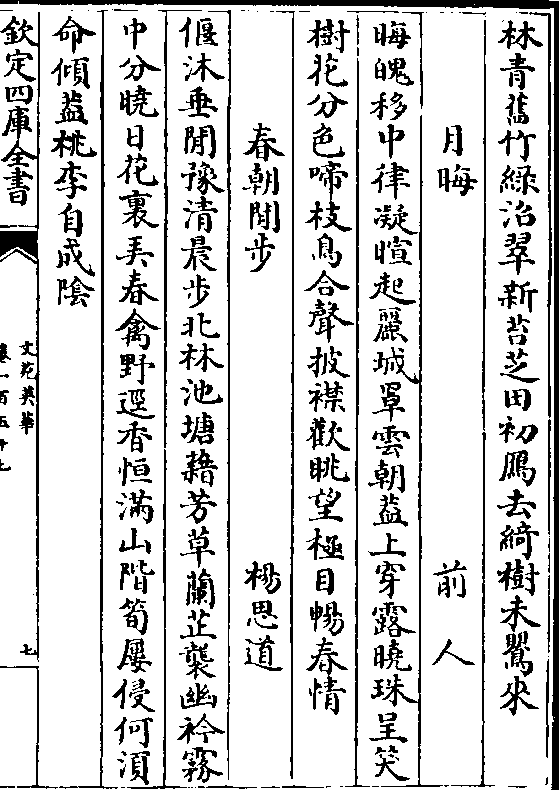 林青舊竹緑沿翠新苔芝田初鴈去綺樹未鸎來
月晦　前人
晦魄移中律凝暄起麗城罩雲朝葢上穿露曉珠呈笑
樹花分色啼枝鳥合聲披襟歡眺望極目暢春情
春朝閒步　楊思道
偃沐乗閒豫清晨步北林池塘藉芳草蘭芷襲幽衿霧
中分曉日花裏弄春禽野逕香恒滿山階筍屢侵何湏
命傾葢桃李自成隂
欽定四庫全書
文苑英華
卷一百五十七
七